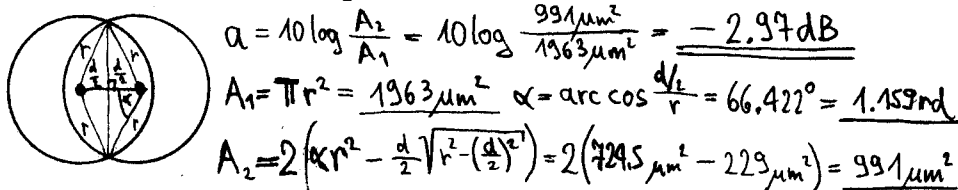 r r
d/2 d/2
α
r r
a = 10 log A₂/A₁ = 10 log 991µm²/1963µm² = − 2.97dB
A₁ = πr² = 1963µm² α = arc cos d/2/r = 66.422° = 1.159rd
A₂ = 2(αr² − d/2 √(r² − (d/2)²)) = 2(729.5µm² − 229µm²) = 991µm²